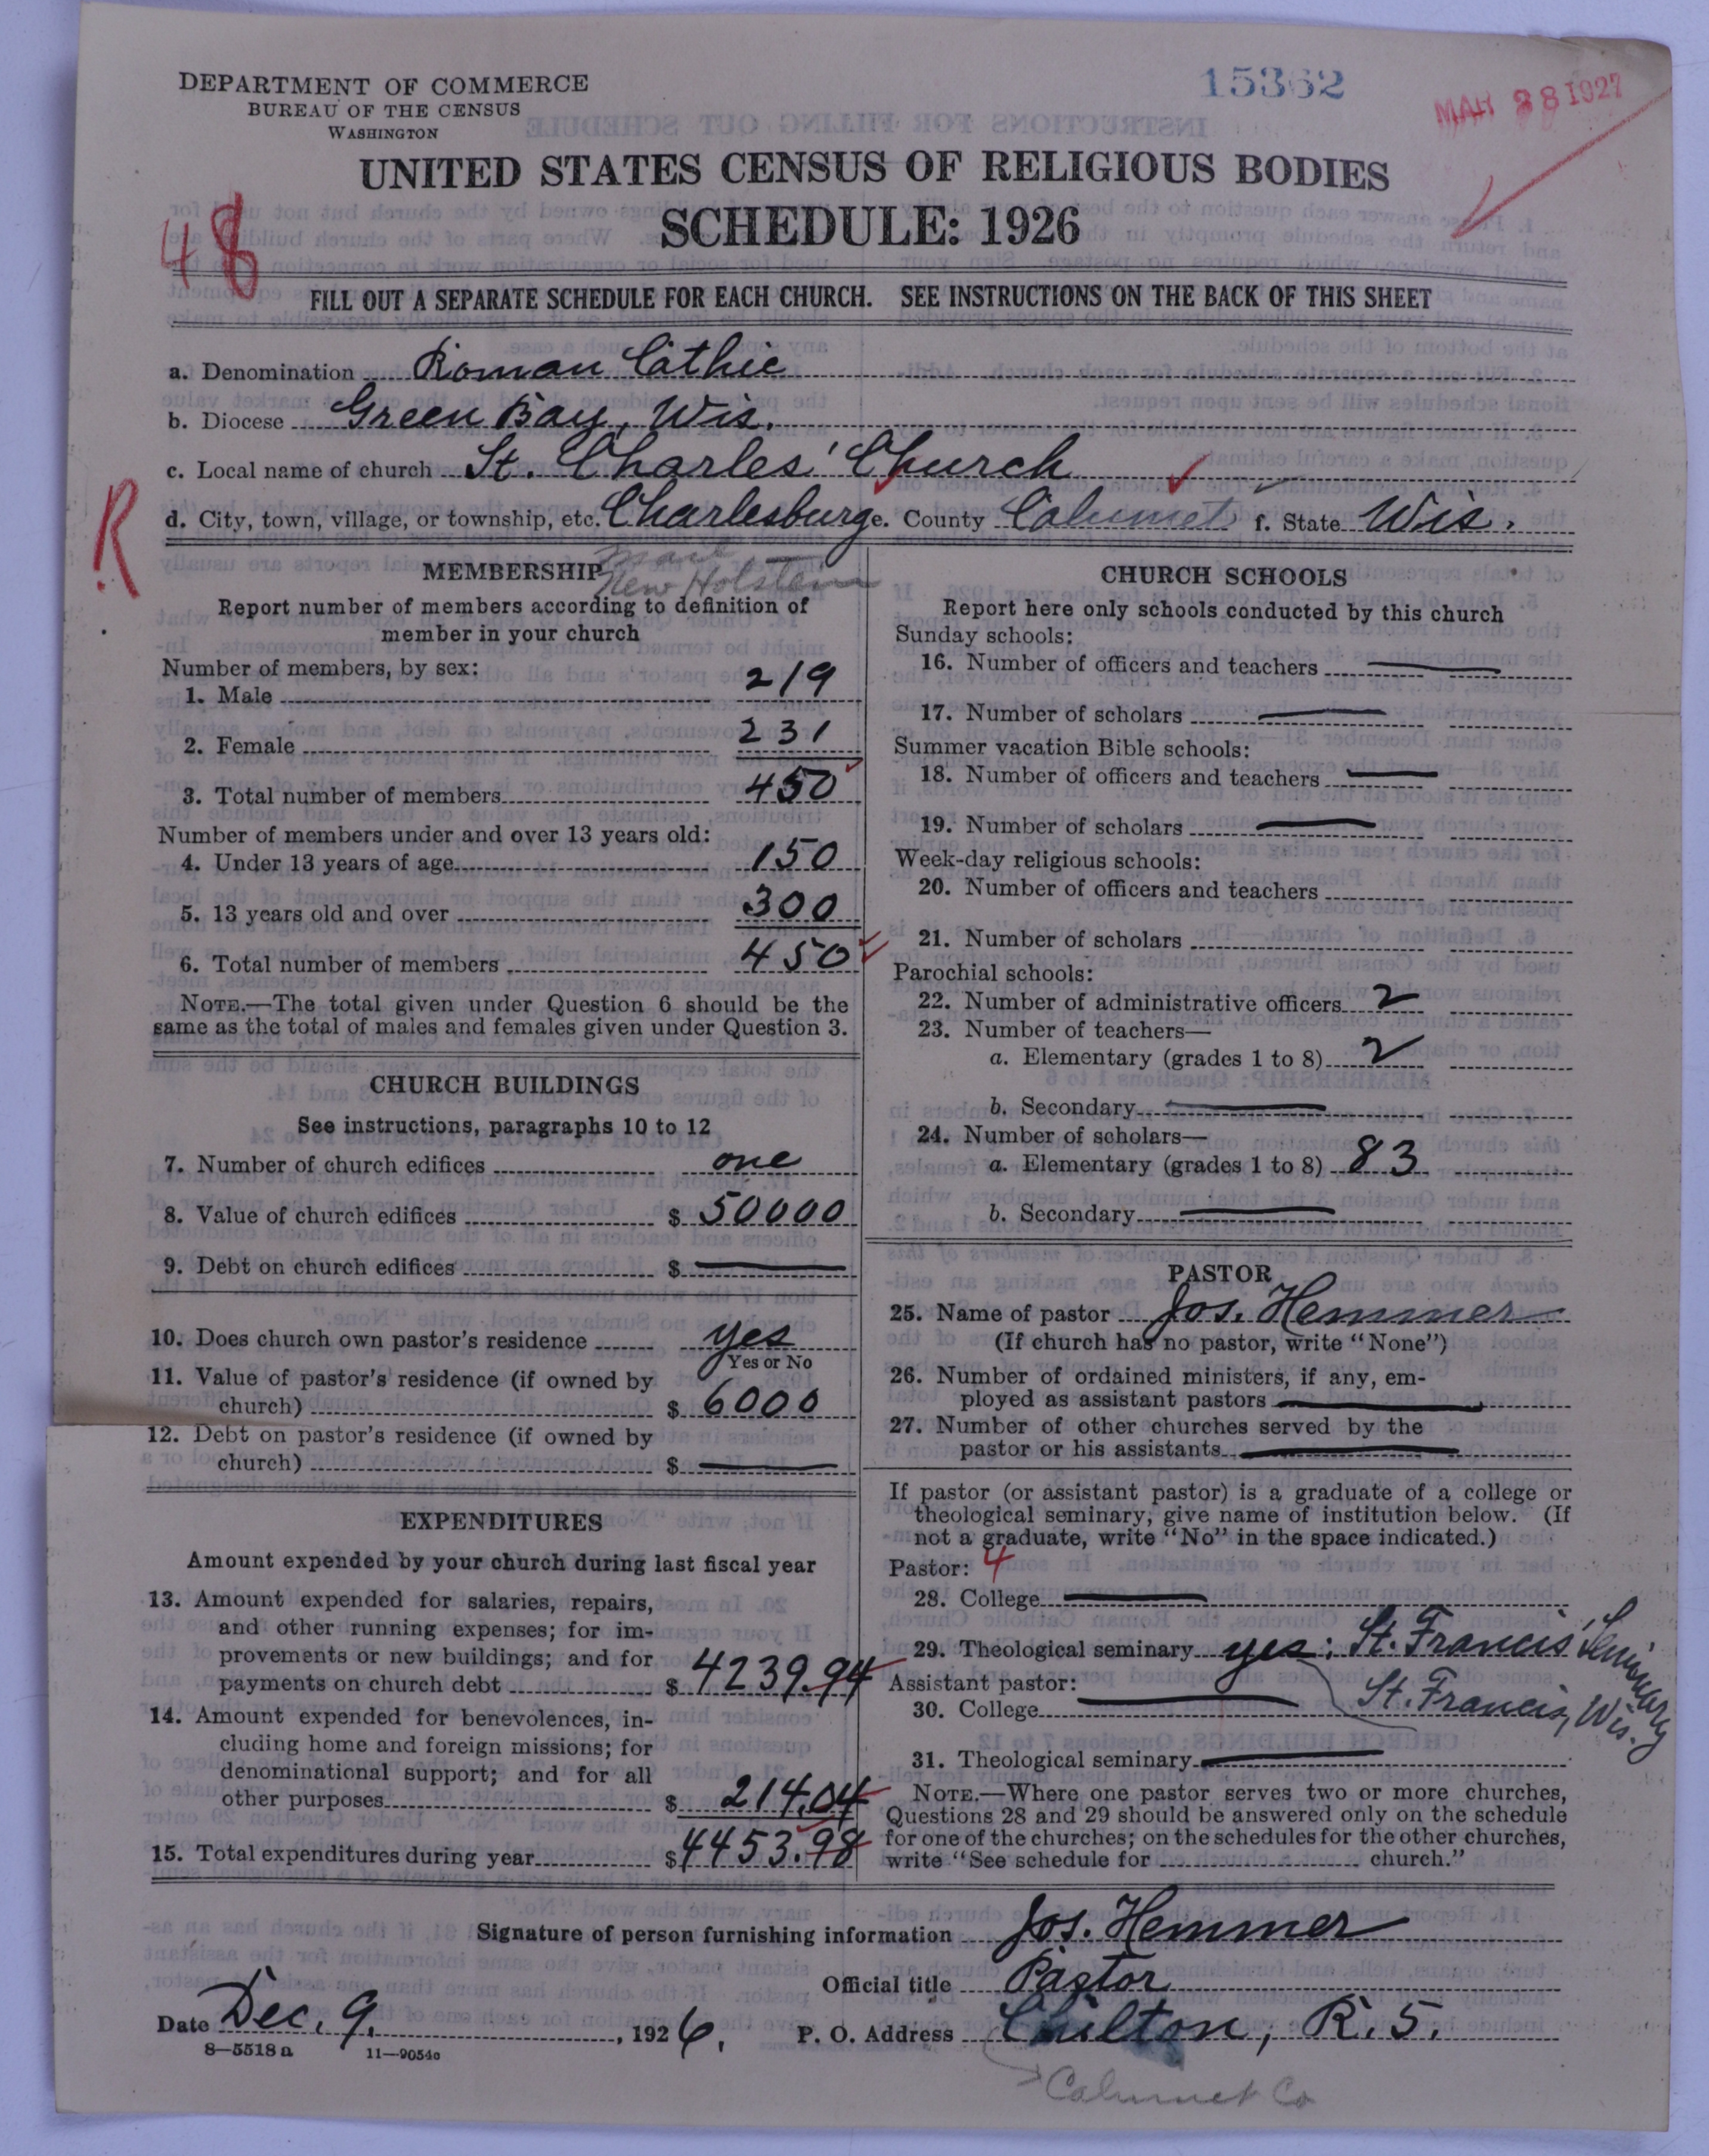 DEPARTMENT OF COMMERCE
BUREAU OF THE CENSUS
WASHINGTON
15362
MAR 28 1927
UNITED STATES CENSUS OF RELIGIOUS BODIES
SCHEDULE: 1926
48
FILL OUT A SEPARATE SCHEDULE FOR EACH CHURCH. SEE INSTRUCTIONS ON THE BACK OF THIS SHEET
a. Denomination Roman Cathic
b. Diocese Green Bay, Wis.
c. Local name of church St. Charles' Church
R
d. City, town, village, or township, etc. Charlesburg e. County Calumet f. State Wis.
New Holstein
MEMBERSHIP
Report number of members according to definition of
member in your church
Number of members, by sex:
1. Male 219
2. Female 231
3. Total number of members 450
Number of members under and over 13 years old:
4. Under 13 years of age 150
5. 13 years old and over 300
6. Total number of members 450
NOTE.—The total given under Question 6 should be the
same as the total of males and females given under Question 3.
CHURCH BUILDINGS
See instructions, paragraphs 10 to 12
7. Number of church edifices one
8. Value of church edifices $ 50000
9. Debt on church edifices $ —
10. Does church own pastor's residence yes
Yes or No
11. Value of pastor's residence (if owned by
church) $ 6000
12. Debt on pastor's residence (if owned by
church) $ —
EXPENDITURES
Amount expended by your church during last fiscal year
13. Amount expended for salaries, repairs,
and other running expenses; for im-
provements or new buildings; and for
payments on church debt $ 4239.94
14. Amount expended for benevolences, in-
cluding home and foreign missions; for
denominational support; and for all
other purposes $ 214.04
15. Total expenditures during year $ 4453.98
CHURCH SCHOOLS
Report here only schools conducted by this church
Sunday schools:
16. Number of officers and teachers —
17. Number of scholars —
Summer vacation Bible schools:
18. Number of officers and teachers —
19. Number of scholars —
Week-day religious schools:
20. Number of officers and teachers
21. Number of scholars
Parochial schools:
22. Number of administrative officers 2
23. Number of teachers—
a. Elementary (grades 1 to 8) 2
b. Secondary —
24. Number of scholars—
a. Elementary (grades 1 to 8) 83
b. Secondary —
PASTOR
25. Name of pastor Jos. Hemmer
(If church has no pastor, write "None")
26. Number of ordained ministers, if any, em-
ployed as assistant pastors —
27. Number of other churches served by the
pastor or his assistants —
If pastor (or assistant pastor) is a graduate of a college or
theological seminary, give name of institution below. (If
not a graduate, write "No" in the space indicated.)
Pastor: 4
28. College —
29. Theological seminary yes: St. Francis' Seminary
Assistant pastor: St. Francis, Wis.
30. College —
31. Theological seminary —
NOTE.—Where one pastor serves two or more churches,
Questions 28 and 29 should be answered only on the schedule
for one of the churches; on the schedules for the other churches,
write "See schedule for church."
Signature of person furnishing information Jos. Hemmer
Official title Pastor
Date Dec. 9, 1926. P. O. Address Chilton, R. 5.
8—5518a 11—9054a
Calumet Co